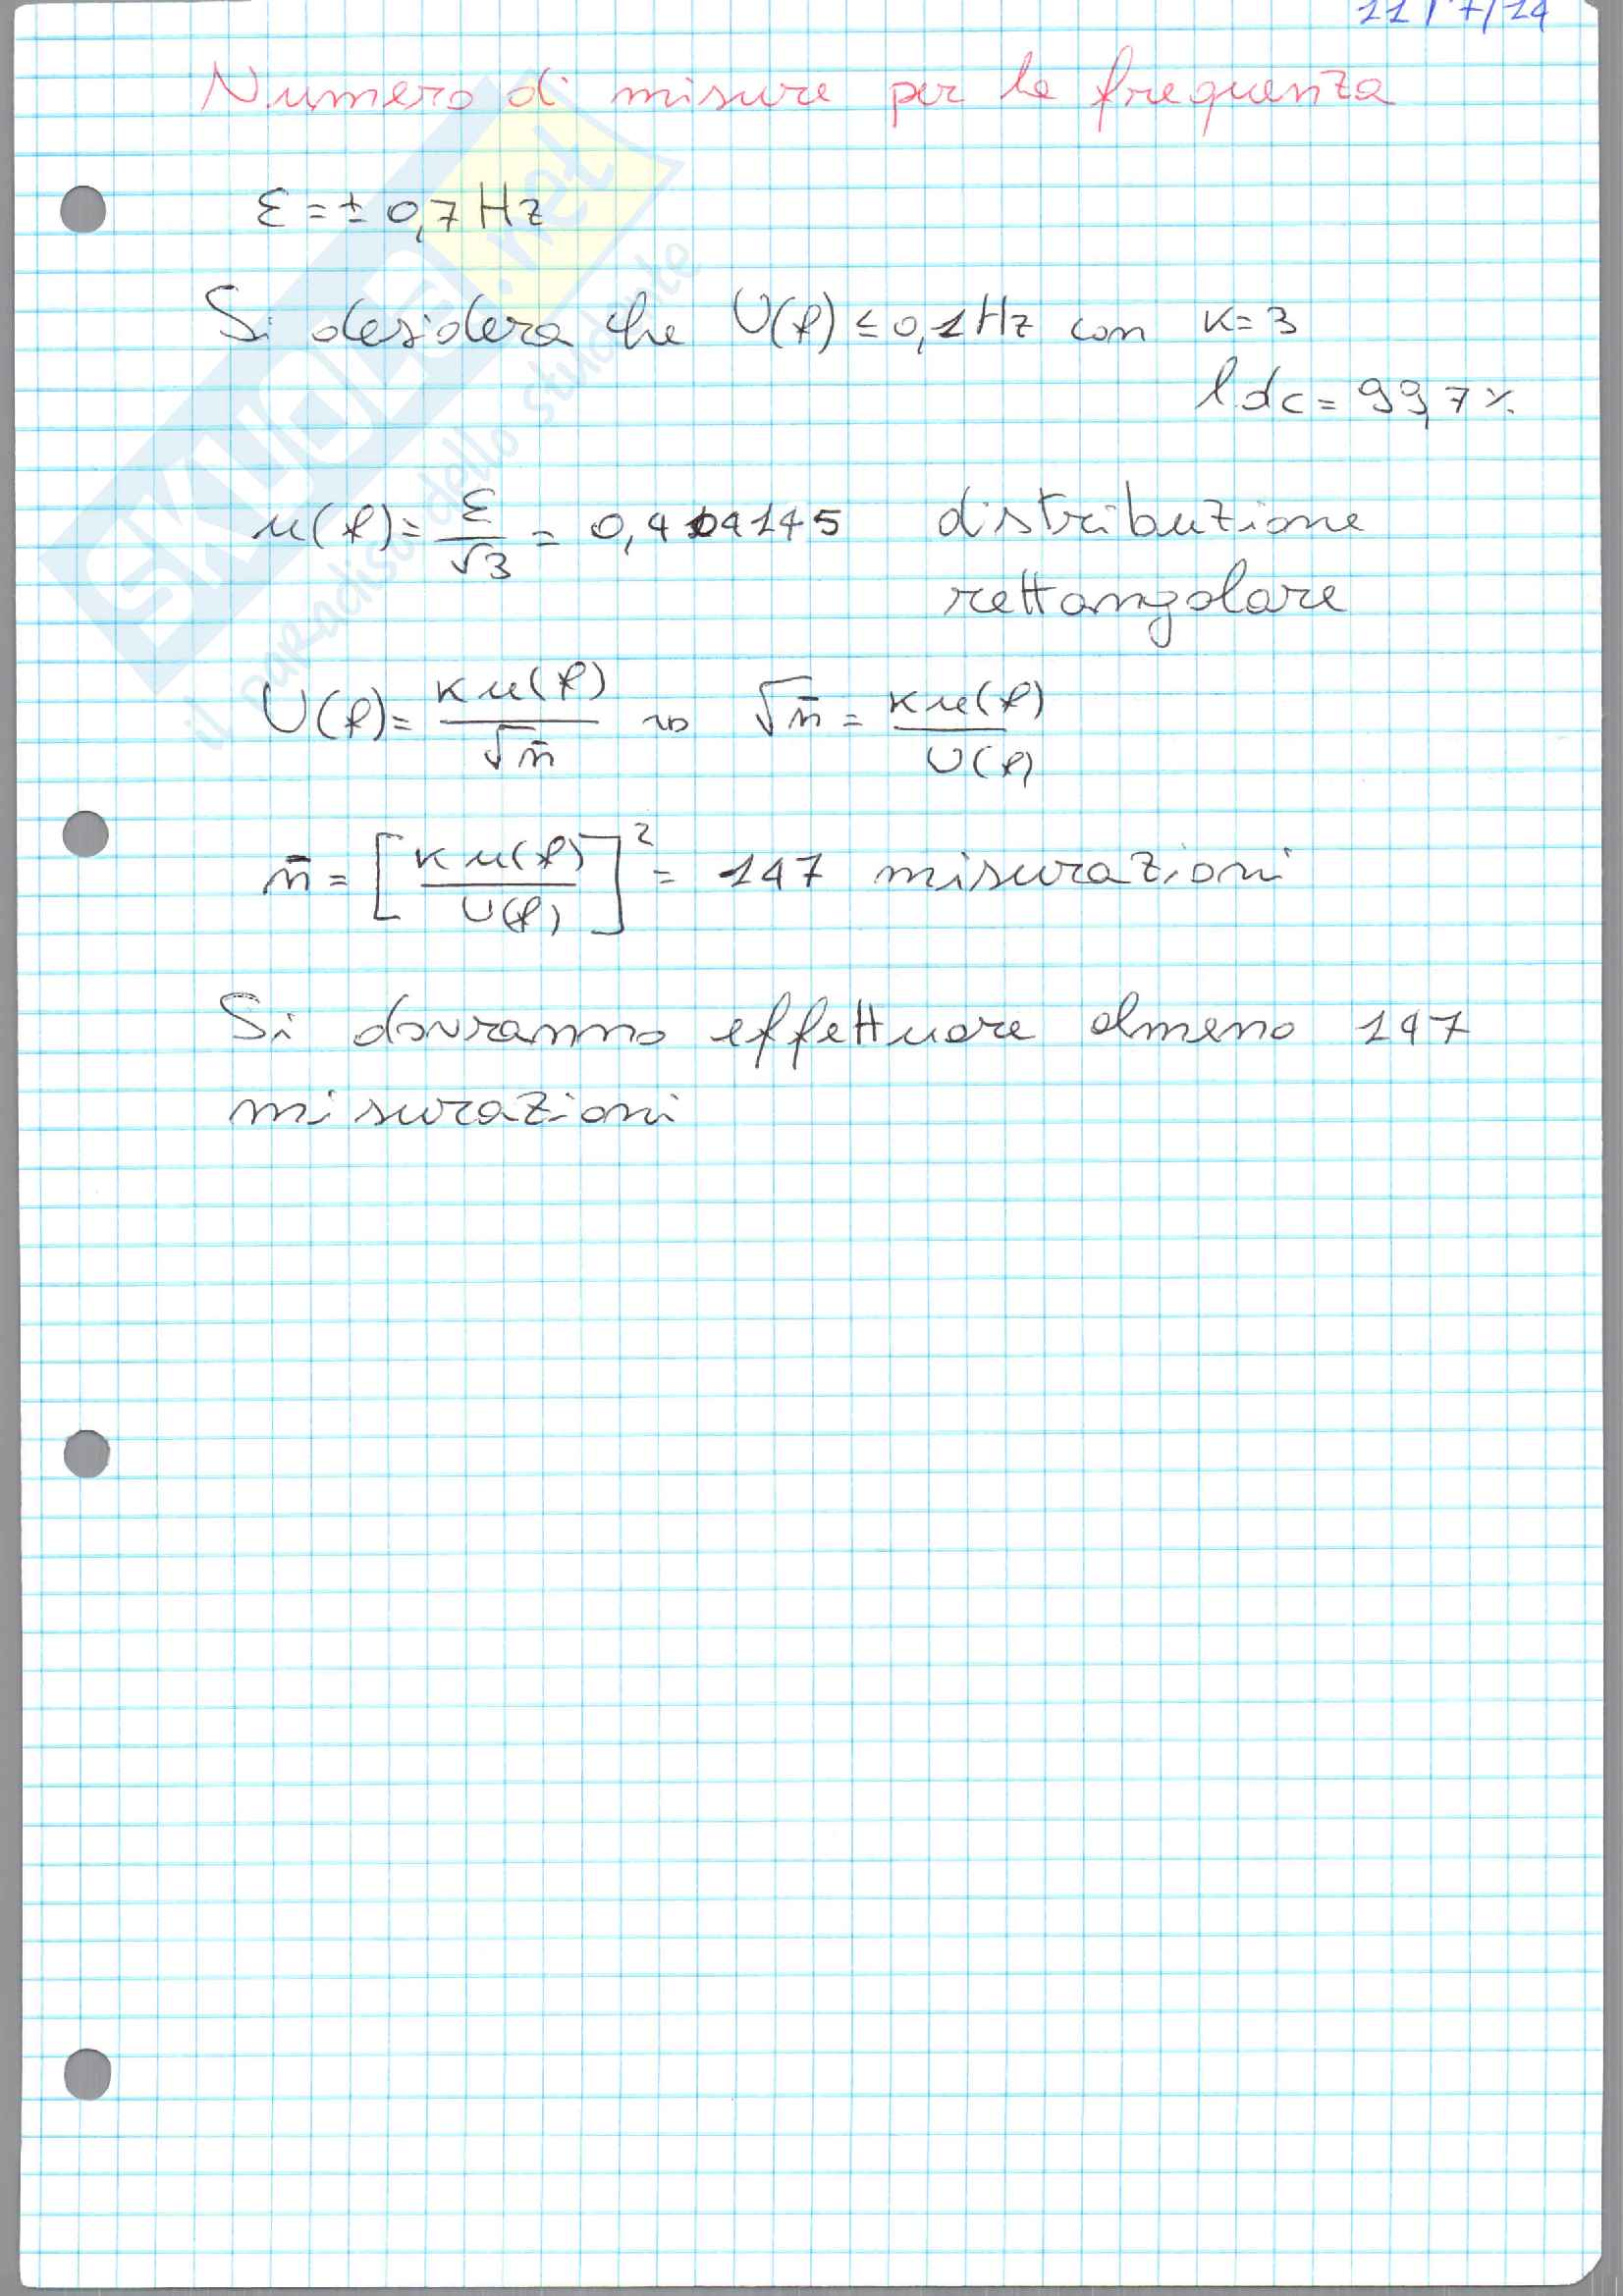 11/7/14
Numero di misure per la frequenza
ε = ± 0,7 Hz
Si desidera che U(f) ≤ 0,1 Hz con K=3
ldc = 99,7%
u(f) = ε/√3 = 0,404145 distribuzione
rettangolare
U(f) = K u(f)/√n̄ ⇝ √n̄ = K u(f)/U(f)
n̄ = [K u(f)/U(f)]² = 147 misurazioni
Si dovranno effettuare almeno 147
misurazioni
SKUOLA.net
il paradiso dello studente